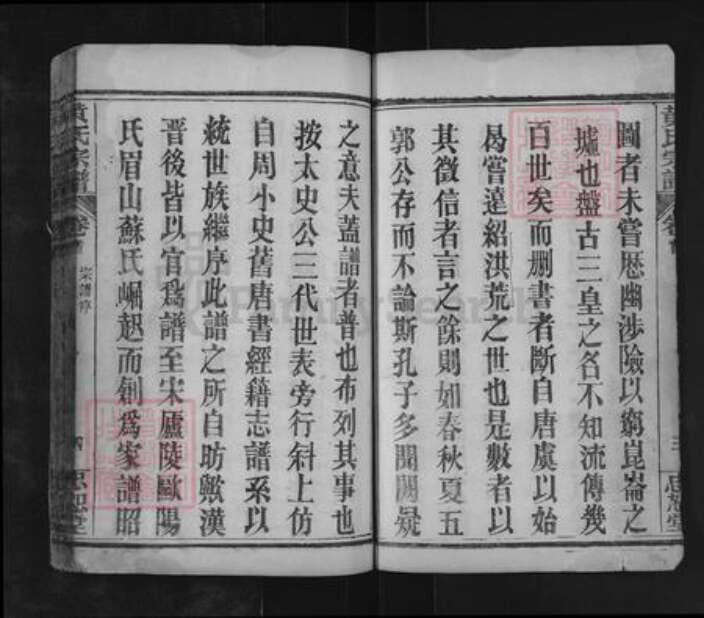 黃氏宗譜
卷首
三
圖者未嘗歷幽涉險以窮崑崙之
墟也盤古三皇之名不知流傳幾
百世矣而刪書者斷自唐虞以始
曷嘗遠紹洪荒之世也是數者以
其徵信者言之餘則如春秋夏五
郭公存而不論斯孔子多聞闕疑
之意夫蓋譜者普也布列其事也
按太史公三代世表旁行斜上仿
自周小史舊唐書經籍志譜系以
統世族繼序此譜之所自昉歟漢
晉後皆以官爲譜至宋廬陵歐陽
氏眉山蘇氏崛起而創爲家譜昭
黃氏宗譜
卷首
宗譜序
FamilySearch